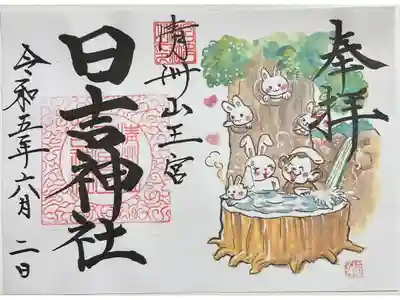 奉拝
清洲山王宮
日吉神社
令和五年六月二日